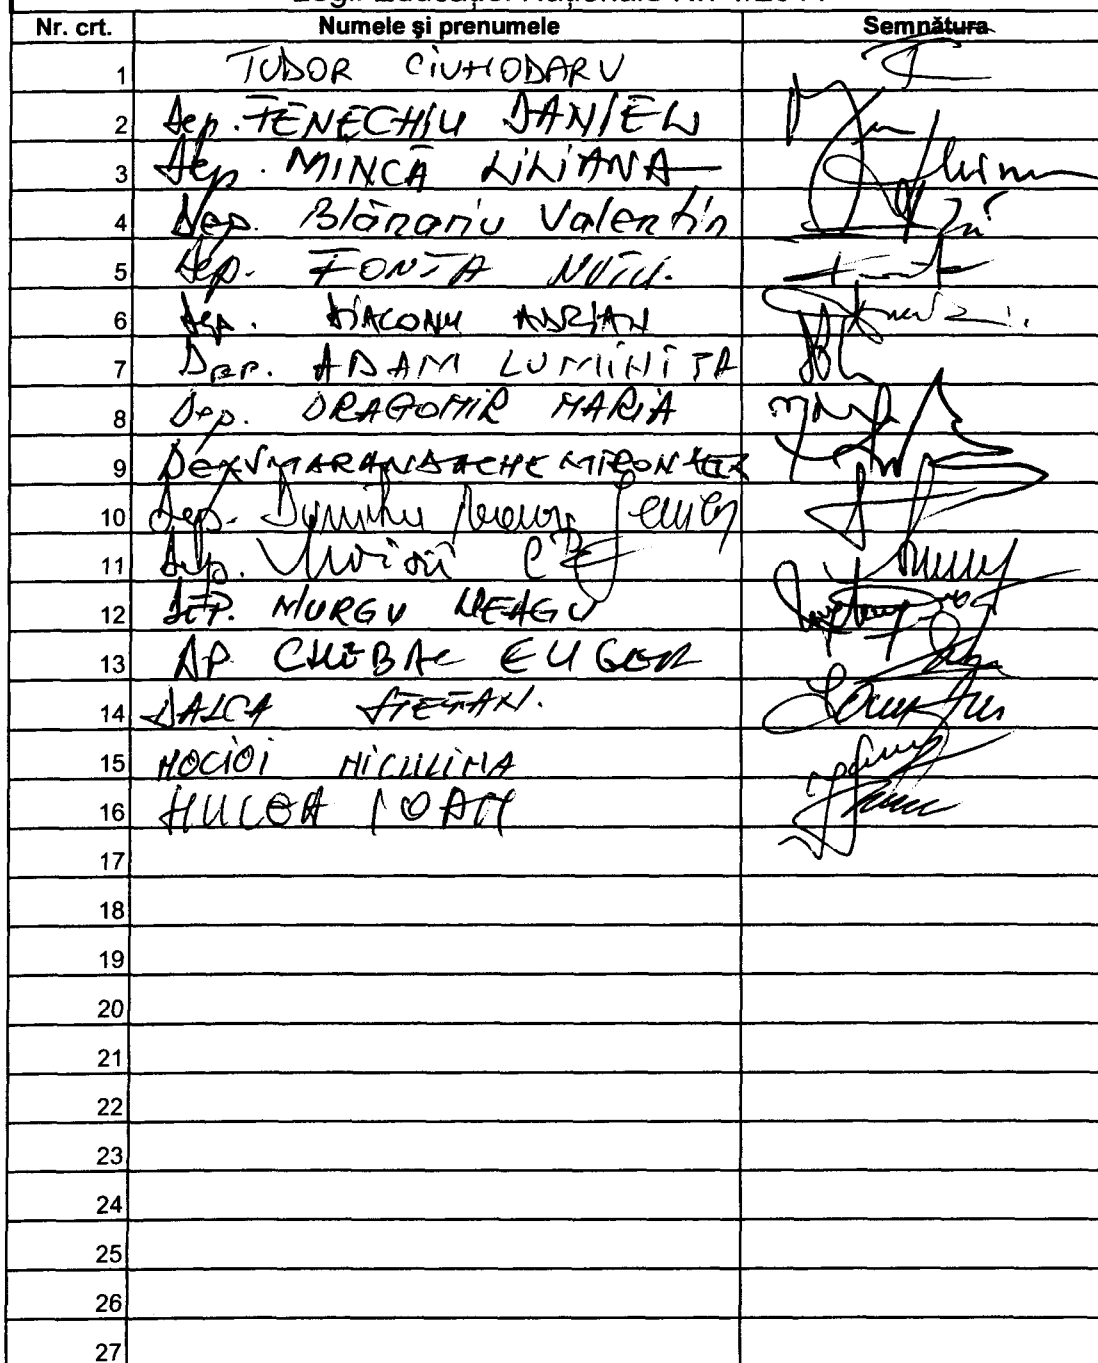 Legii Educației Naționale Nr. 1/2011
Nr. crt. Numele și prenumele Semnătura
1 TUDOR CIUHODARU
2 Dep. FENECHIU DANIEL
3 Dep. MINCĂ LILIANA
4 Dep. Blănariu Valentin
5 Dep. FONTA NUȚU.
6 Dep. DIACONU ADRIAN
7 Dep. ADAM LUMINIȚA
8 Dep. DRAGOMIR MARIA
9 Dep. SMARANDACHE MIRON
10 Dep. Dumitru
11 Dep.
12 DEP. MURGU NEAGU
13 DP. CHEBAC EUGEN
14 DALCA ȘTEFAN.
15 MOCIOI NICULINA
16 HULEA IOAN
17
18
19
20
21
22
23
24
25
26
27